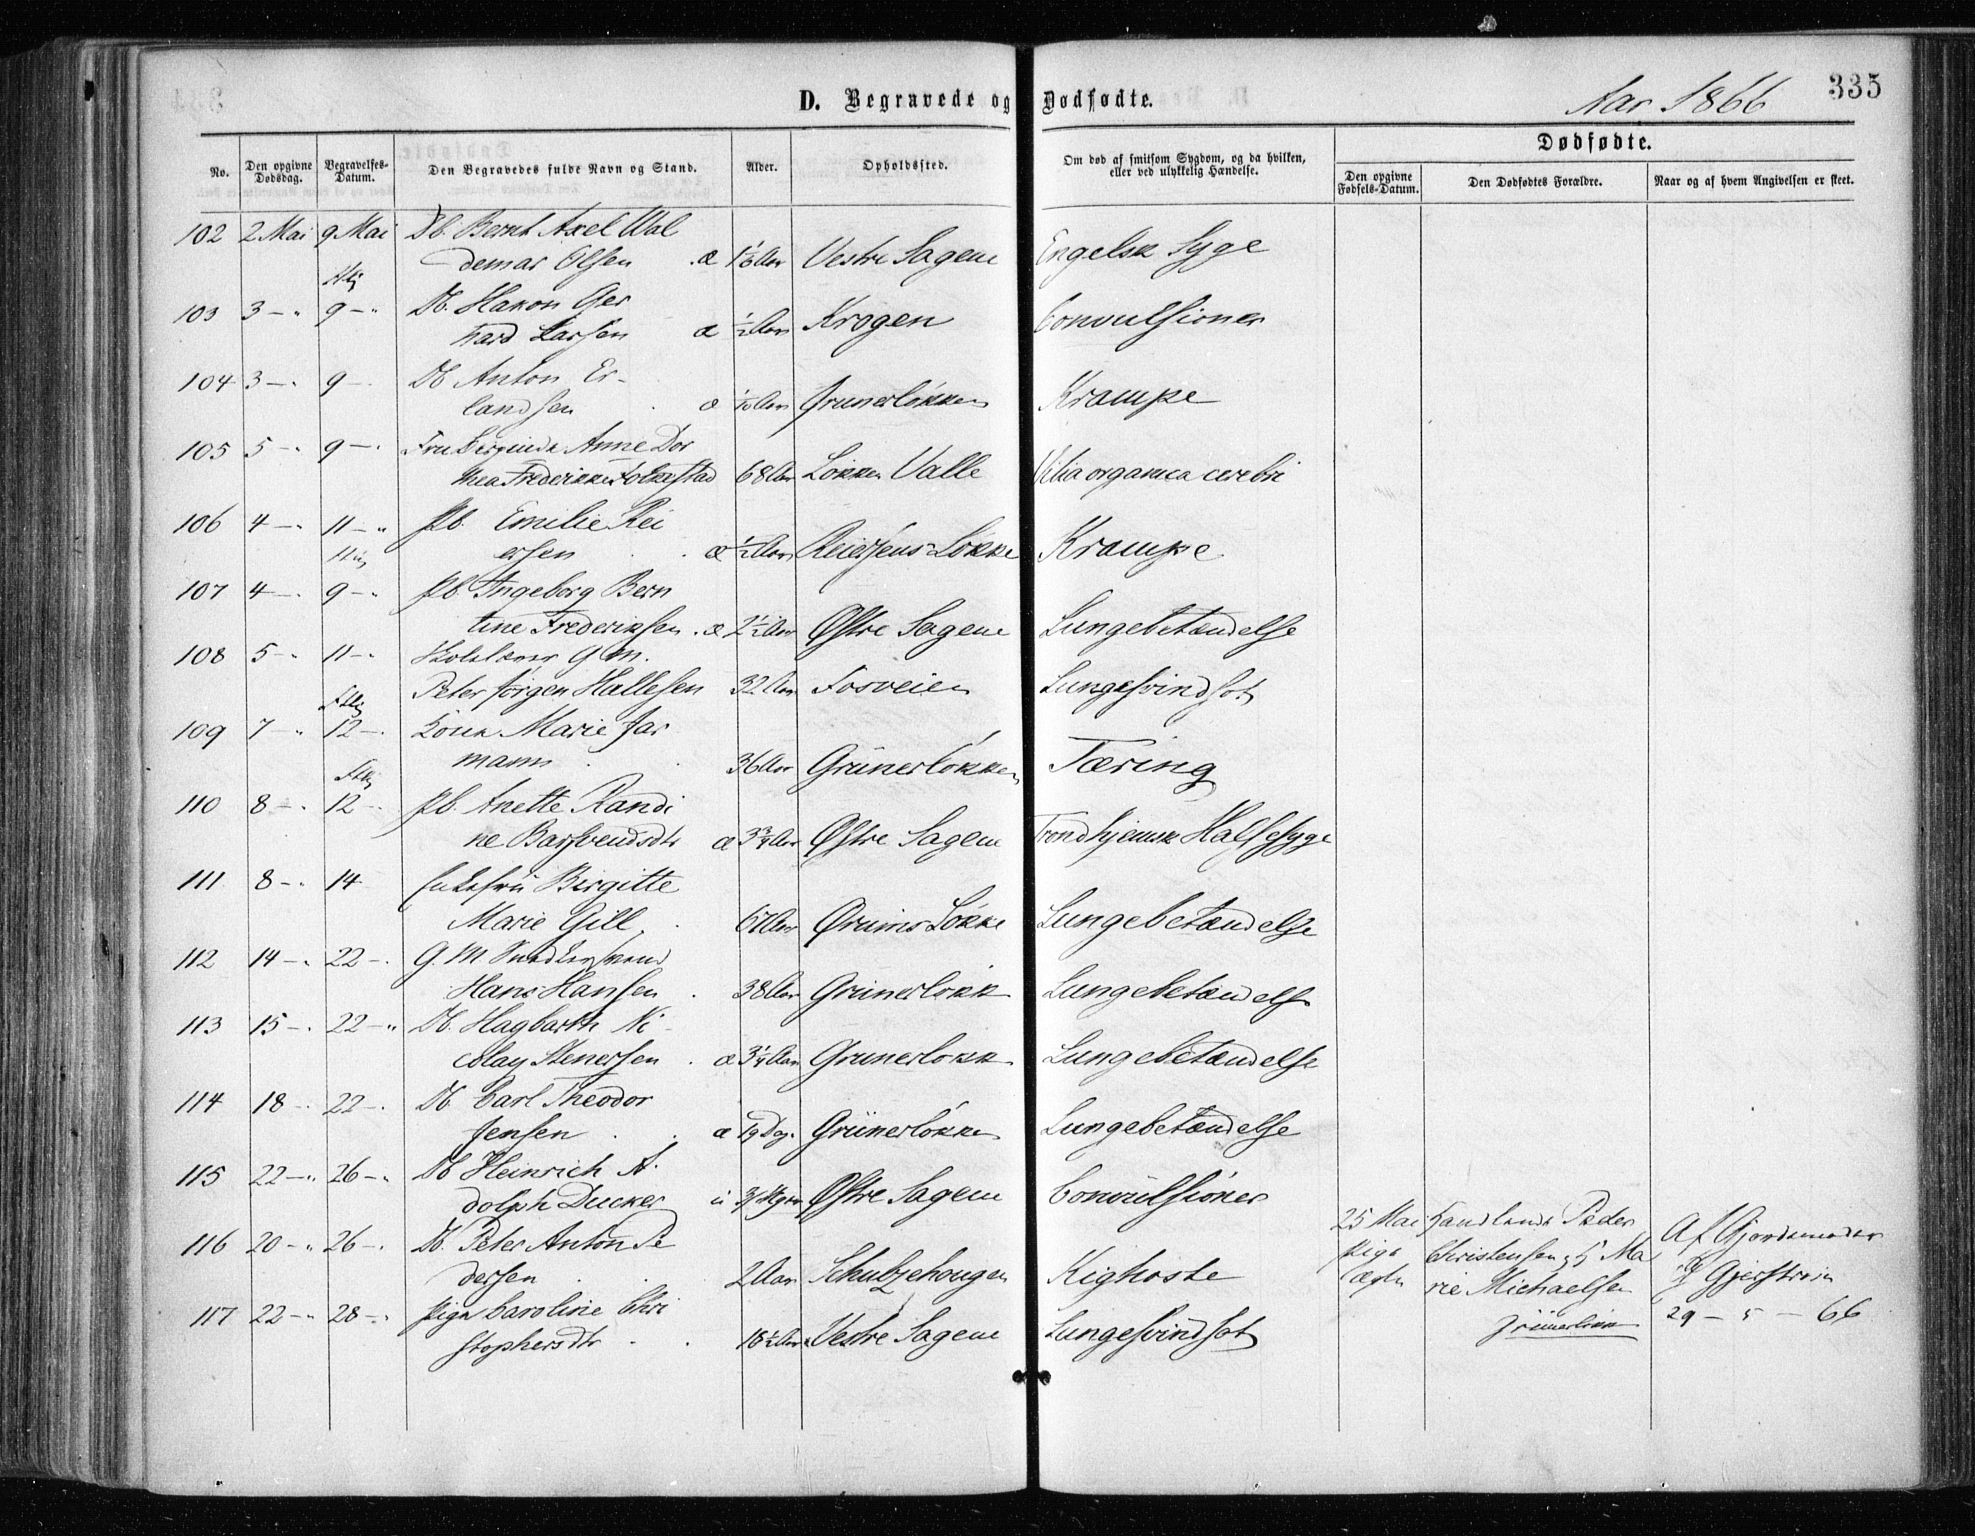 D. Begravede og Dødfødte.
Aar 1866
335
No.
Den opgivne Dødsdag.
Begravelses-Datum.
Den Begravedes fulde Navn og Stand.
Alder.
Opholdssted.
Om død af smitsom Sygdom, og da hvilken, eller ved ulykkelig Hændelse.
Dødfødte.
Den opgivne Fødsels-Datum.
Den Dødfødtes Forældre.
Naar og af hvem Angivelsen er skeet.
102 2 Mai 9 Mai Db. Bernt Axel Wal
demar Olsen . æ Aar Vestre Sagene Engelsk Syge
103 3 - " 9 - " Db. Hakon Ger
hard Larsen æ ½ Aar Krogen Convulsioner
104 3 - " 9 - Db Anton Er-
landsen . æ 1/10 Aar Grunerløkken Krampe
105 5 - " 9 - " Fru Anne Dor
thea Frederikke Folkestad 68 Aar Løkken Valle Vitia organica cerebri
106 4 - " 11 - " Pb. Emilie Rei
ersen . . æ ½ Aar Reiersens Løkke Krampe
107 4 - " 9 - " Pb. Ingeborg Bern
tine Frederiksen . æ 2½ Aar Østre Sagene Lungebetændelse
108 5 - " 11 - " G M.
Peter Jørgen Hallesen 32 Aar Fosveien Lungesvindsot
109 7 - " 12 - " Kona Marie Jar
mann . . 36 Aar Grünerløkken Tæring
110 8 - " 12 - " Pb. Anette Randi
ne Baarsvendsdtr æ 3¾ Aar Østre Sagene Trondhjemsk Halssyge
111 8 - " 14 Enkefru Birgitte
Marie Gill . 67 Aar Ørums Løkke Lungebetændelse
112 14 - " 22 - " G. M
Hans Hansen . 38 Aar Grünerløkk Lungebetændelse
113 15 - " 22 - " Db. Hagbarth Ni-
colay Stenersen . æ 3¼ Aar Grunerløkk Lungebetændelse
114 18 - " 22 - " Db. Carl Theodor
Jensen . . æ 19 Dag. Grünerløkken Lungebetændelse
115 22 - " 26 - " Db Heinrich A-
dolph Ducker Østre Sagene Convulsioner
116 20 - " 26 - " Db. Peter Anton Pe
dersen . . 2 Aar Schultzehougen Kighoste
117 22 - " 28 - " Pige Caroline Chri
stophersdtr . . 18½ Aar Vestre Sagene Lungesvindsot
25 Mai
Pige
Ægte
Peder
Christensen og H Ma
rie Michaelsen
Grünerløkk
Af Gjordemoder
29 - 5 - 66